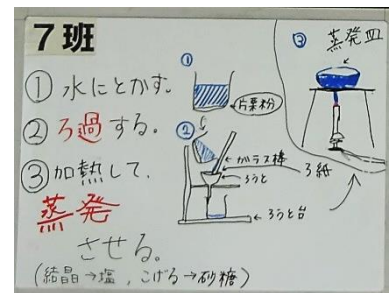 7班
① 水にとかす。
② ろ過する。
③ 加熱して、
蒸発
させる。
(結晶→塩, こげる→砂糖)
①
片栗粉
②
ガラス棒
ろうと
ろ紙
ろうと台
③ 蒸発皿